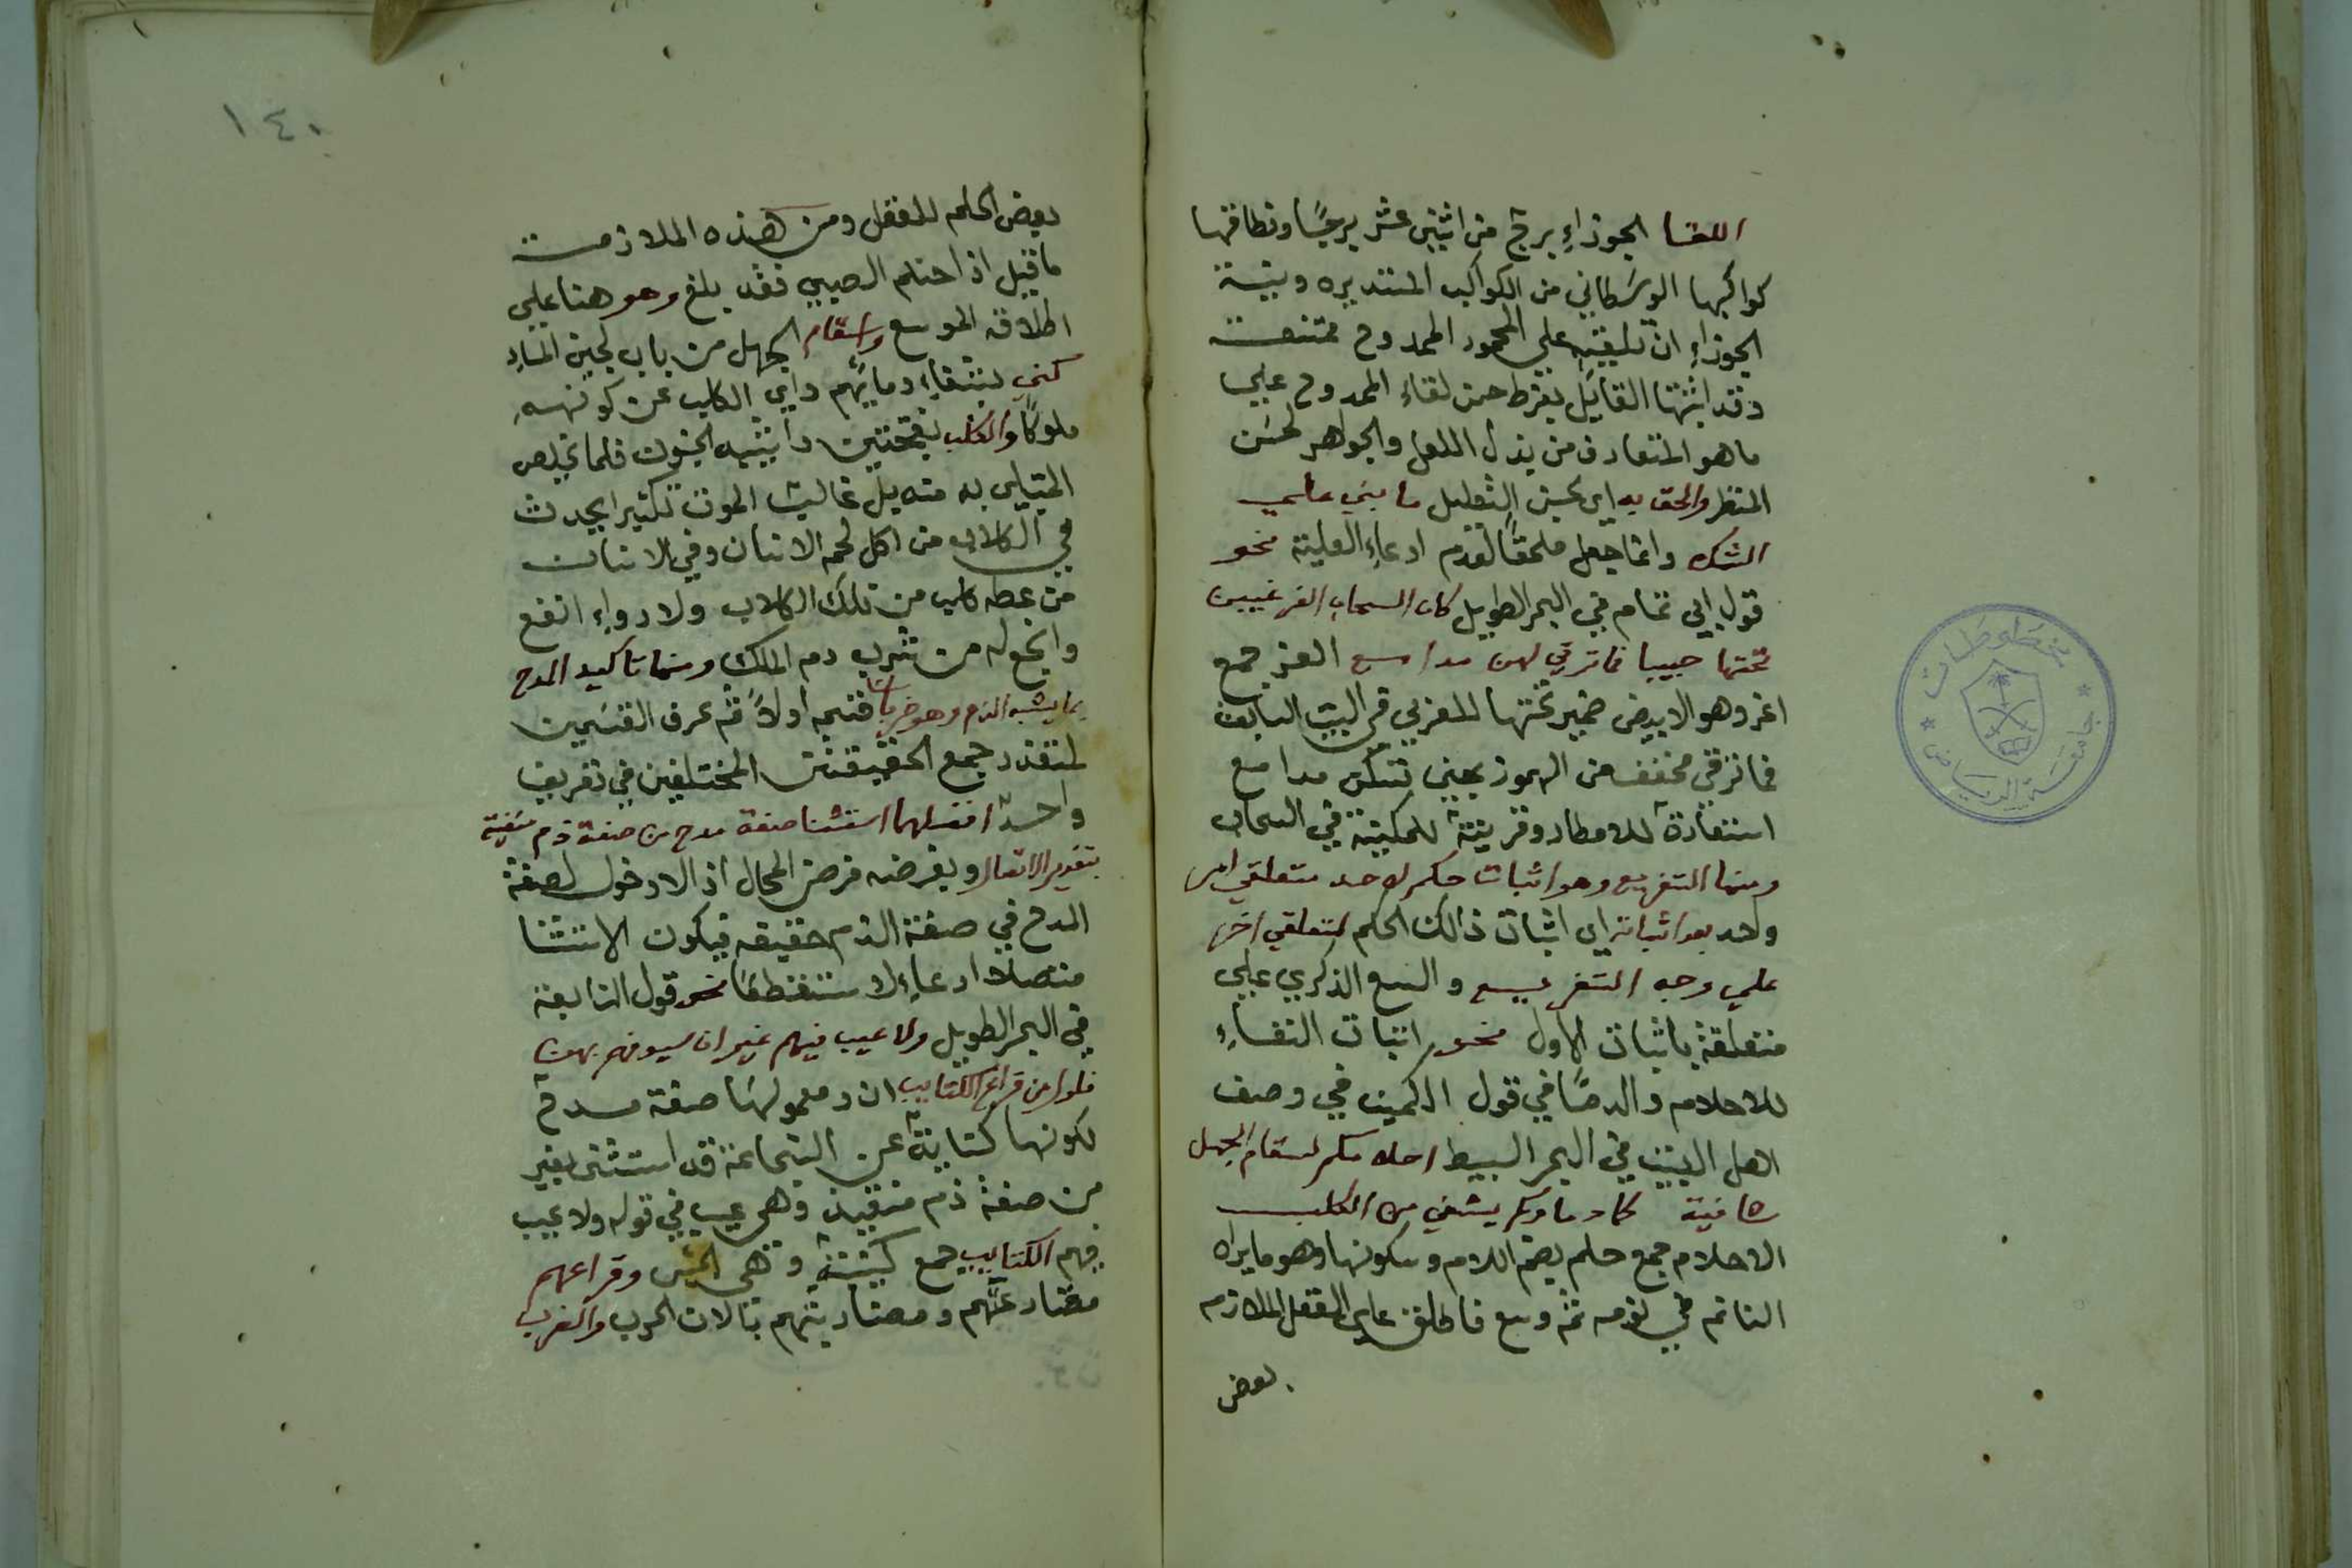 اللقا الجوزاءِ برج من اثنى عشر برجًا ونطاقها
كواكبها الوسطاني من الكواكب المستديره ونية
الجوزاءِ ان علي المحمود الممدوح ممتنعة
وقد اثبتها القايل بفرط حسن لقاء الممدوح علي
ما هو المتعارف من بذل اللعل والجواهر لحسن
المنظر والحق به اي بحسن التعليل ما بني علي
الشك وانما جعل ملحقًا لعدم ادعاءِ العلية نحو
قول ابي تمام في البحر الطويل كان السحاب الغر غيبن
تحتها حبيبا فما ترقي لهن مدامع الغر جمع
اغر وهو الابيض ضمير تحتها للمغزي في البيت السابق
فما ترقي مخفف من المهموز بمعني تسكن مدامع
استعارة للامطار وقرينة للمكنية في السحاب
ومنها التفريع وهو اثبات حكم لاحد متعلقي امر
واحد بعد اثباته اي اثبات ذالك الحكم لمتعلقي اخر
علي وجه التفريع والتبع الذكري علي
متعلقة باثبات الاول نحو اثبات الشفاءِ
للاحلام والدما في قول الكميت في وصف
اهل البيت في البحر البسيط احلامكم لسقام الجهل
شافية كما دماوكم يشفي من الكلب
الاحلام جمع حلم بضم اللام وسكونها وهو ما يراه
النائم في نومه ثم وسع فاطلق علي العقل الملازم
بعض
١٤٠
بعض الحلم للعقل ومن هذه الملازمة
ما قيل اذا احتلم الصبي فقد بلغ وهو هنا علي
اطلاقه الموسع وسقام الجهل من باب لجين الماءِ
كني بشفاءِ دمائهم داي الكلب عن كونهم
ملوكًا والكلب بفتحتين دا يشبه الجنون قلما تخلص
المبتلي به منه بل غالبه الموت تكثيرا يحدث
في الكلاب من اكل لحم الانسان وفي الانسان
من عضه كلب من تلك الكلاب ولا دواءِ انفع
وانجع له من شرب دم الملك ومنها تاكيد المدح
بما يشبه الذم وهو ضربان قسمه اولاً ثم عرف القسمين
لتعذر جمع الحقيقتين المختلفين في تعريف
واحد افضلهما استثنا صفة مدح من صفة ذم منفية
بتقدير الاتصال وبفرضه فرض المحال اذ لا دخول لصفة
المدح في صفة الذم حقيقه فيكون الاستثنا
متصلا ادعاءِ لا منقطعًا نحو قول النابغة
في البحر الطويل ولا عيب فيهم غير ان سيوفهم بهن
فلول من قراع الكتايب ان ومعمولها صفة مدح
لكونها كناية عن الشجاعة قد استثني بغير
من صفة ذم منفية وهي عيب في قوله ولا عيب
فيهم الكتايب جمع كتيبة وهي الجيش وقراعهم
مضاربتهم بالات الحرب والضرب
مخطوطات
جامعة الرياض